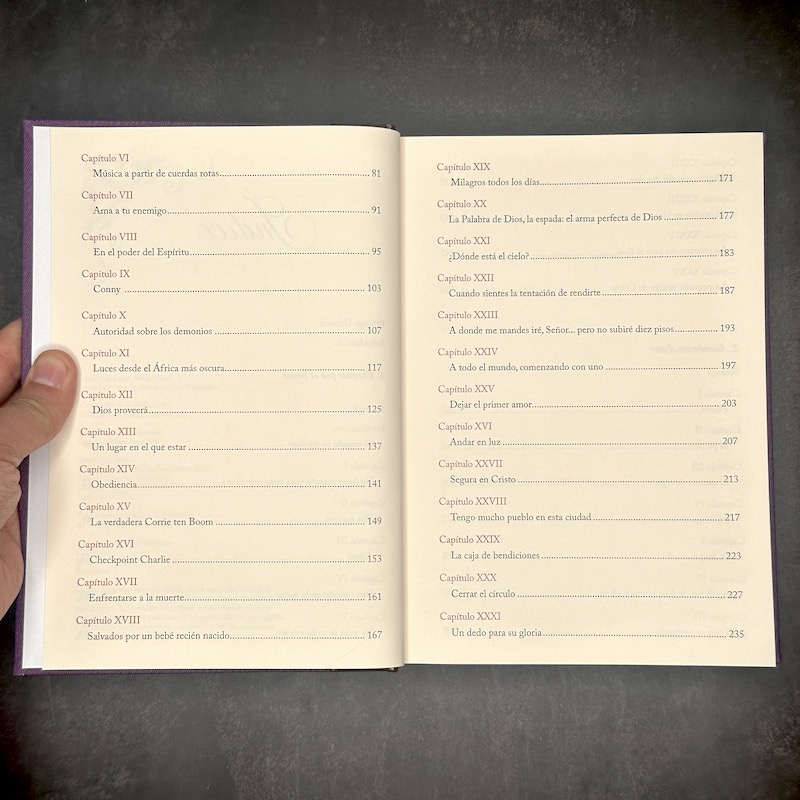 Capítulo VI
Música a partir de cuerdas rotas 81
Capítulo VII
Ama a tu enemigo 91
Capítulo VIII
En el poder del Espíritu 95
Capítulo IX
Conny 103
Capítulo X
Autoridad sobre los demonios 107
Capítulo XI
Luces desde el África más oscura 117
Capítulo XII
Dios proveerá 125
Capítulo XIII
Un lugar en el que estar 137
Capítulo XIV
Obediencia 141
Capítulo XV
La verdadera Corrie ten Boom 149
Capítulo XVI
Checkpoint Charlie 153
Capítulo XVII
Enfrentarse a la muerte 161
Capítulo XVIII
Salvados por un bebé recién nacido 167
Capítulo XIX
Milagros todos los días 171
Capítulo XX
La Palabra de Dios, la espada: el arma perfecta de Dios 177
Capítulo XXI
¿Dónde está el cielo? 183
Capítulo XXII
Cuando sientes la tentación de rendirte 187
Capítulo XXIII
A donde me mandes iré, Señor... pero no subiré diez pisos 193
Capítulo XXIV
A todo el mundo, comenzando con uno 197
Capítulo XXV
Dejar el primer amor 203
Capítulo XVI
Andar en luz 207
Capítulo XXVII
Segura en Cristo 213
Capítulo XXVIII
Tengo mucho pueblo en esta ciudad 217
Capítulo XXIX
La caja de bendiciones 223
Capítulo XXX
Cerrar el círculo 227
Capítulo XXXI
Un dedo para su gloria 235